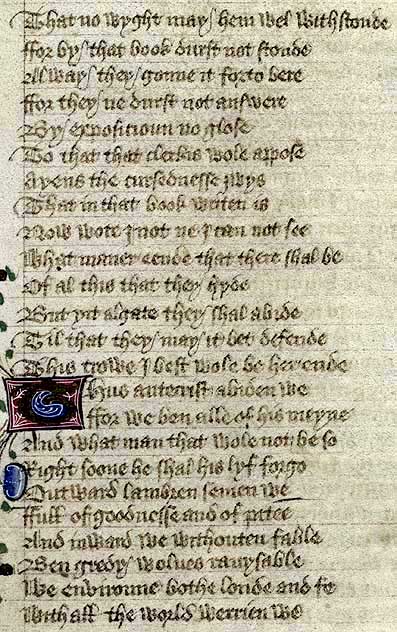 That no wyght may hem wel withstonde
ffor by that book durst not stonde
Alway they gonne it forto bere
ffor they ne durst not answere
By exposicioun no glose
To that that clerkis wole appose
Ayens the cursednesse ywys
That in that book writen is
Now wote I not ne I can not see
What maner eende that there shal be
Of al this that they hyde
But yit algate they shal abide
Til that they may it bet defende
This trowe I best wole be her ende
Thus antecrist abiden we
ffor we ben alle of his meyne
And what man that wole not be so
Right soone he shal his lyf forgo
Outward lambren semen we
ffull of goodnesse and of pitee
And inward we withouten fable
Ben gredy wolues rauysable
We enviroune bothe londe and se
With all the world werrien we